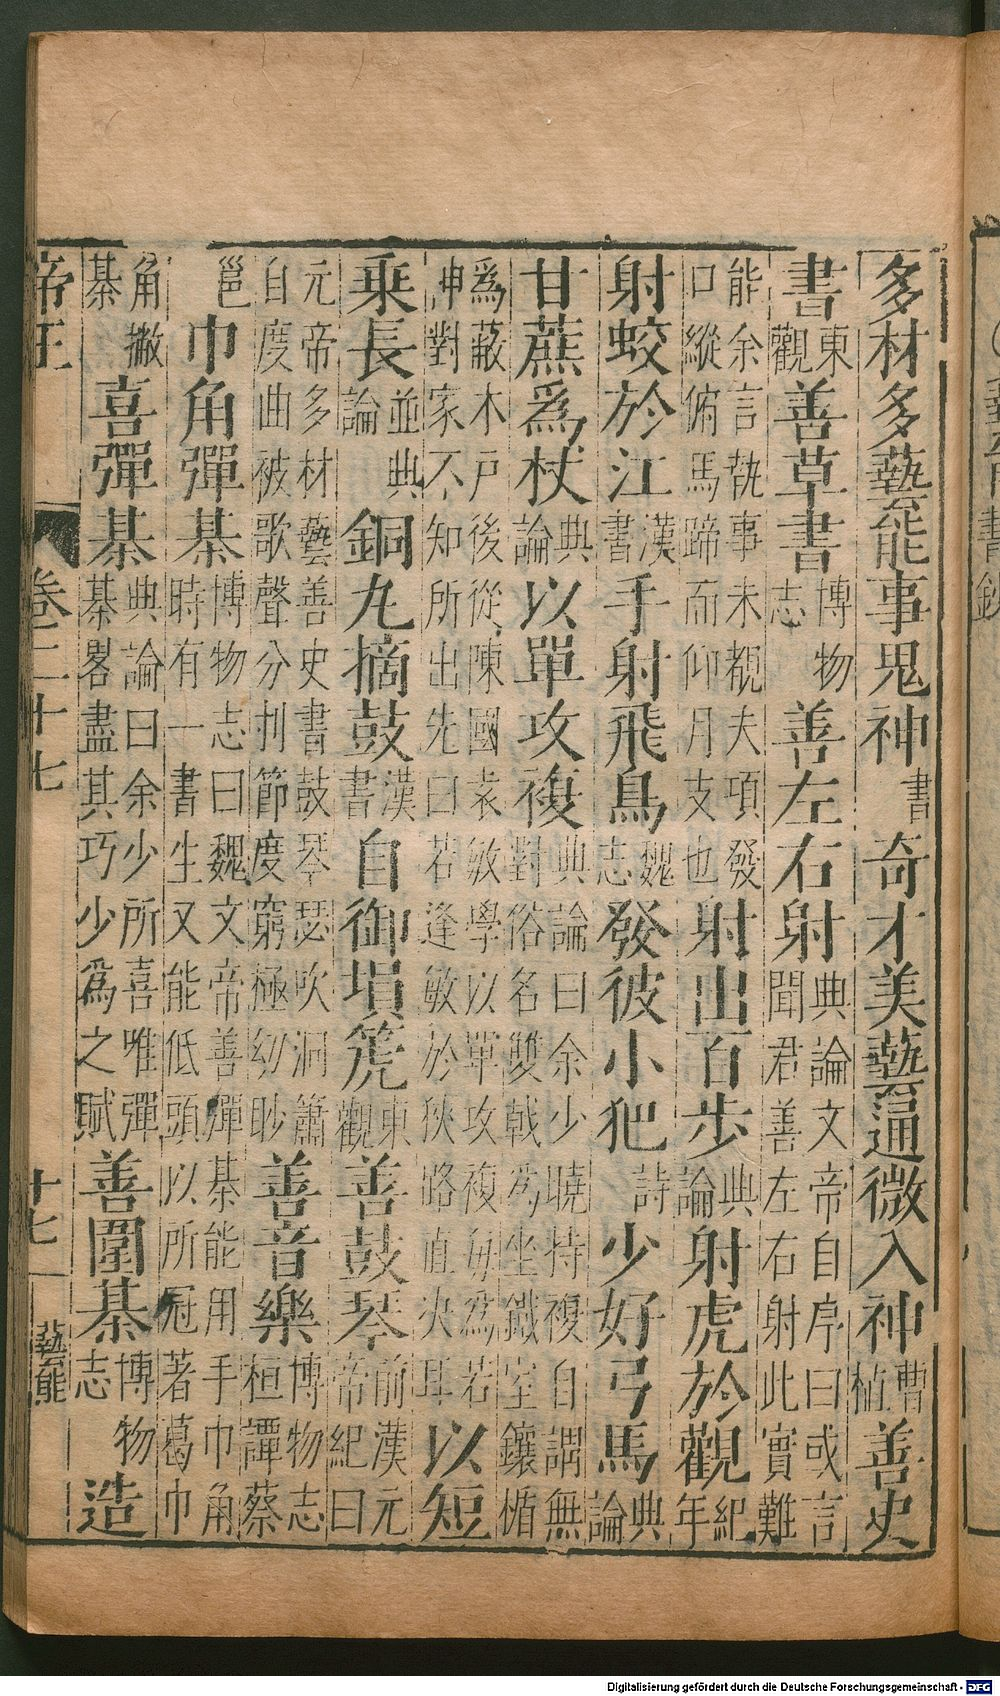 多材多藝能事鬼神書奇才美藝逼微入神曹植善史
書東觀善草書博物志善左右射典論文帝自序曰或言聞君善左右射此實難
能余言執事未覩夫項發口縱俯馬蹄而仰月支也射出百步典論射虎於觀紀年
射蛟於江漢書手射飛鳥魏志發彼小豝詩少好弓馬典論
甘蔗爲杖典論以單攻複典論曰余少曉持複自謂無對俗名雙戟爲坐鐵室鑲楯
爲蔽木戶後從陳國袁敏學以單攻複每爲若神對家不知所出先曰若逢敏於狹路直決耳以短
乘長並典論銅丸擿鼓漢書自御塤箎東觀善鼓琴前漢元帝紀曰
元帝多材藝善史書鼓琴瑟吹洞簫自度曲被歌聲分刌節度窮極幼眇善音樂博物志桓譚蔡
邕巾角彈棊博物志曰魏文帝善彈棊能用手巾角時有一書生又能低頭以所冠著葛巾
角撇棊喜彈棊典論曰余少所喜唯彈棊畧盡其巧少爲之賦善圍棊博物志造
帝王 卷二十七 十七 藝能
Digitalisierung gefördert durch die Deutsche Forschungsgemeinschaft - DFG